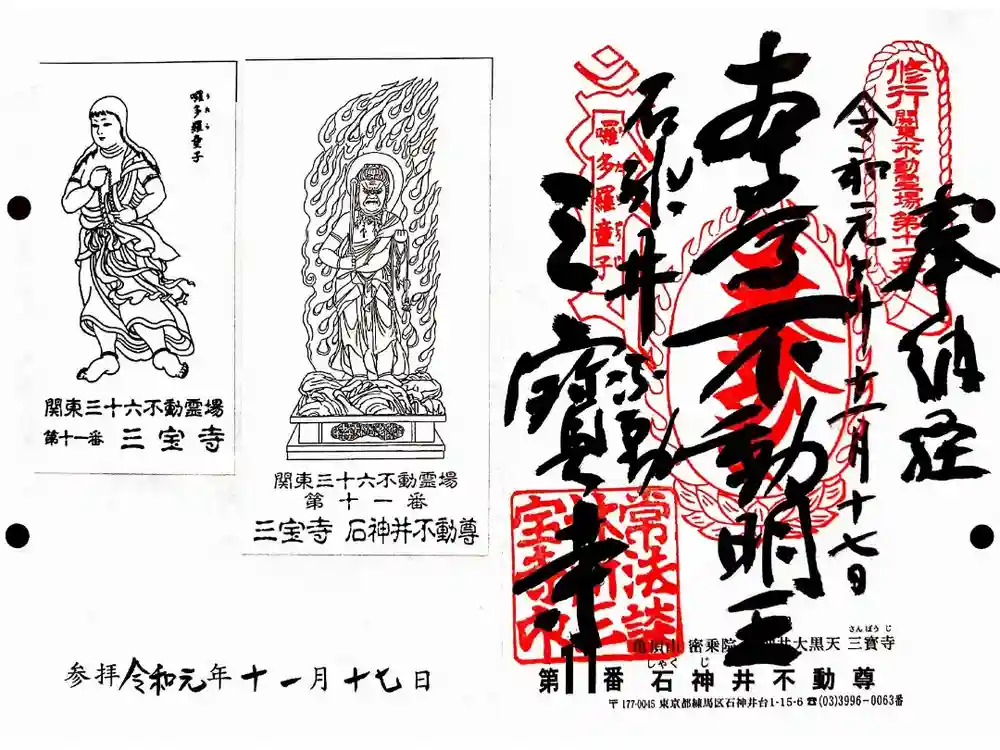 囉多羅童子
関東三十六不動霊場
第十一番 三宝寺
関東三十六不動霊場
第十一番
三宝寺 石神井不動尊
参拝 令和元年十一月十七日
奉納経
修行
関東不動霊場第十一番
令和元年十一月十七日
本尊不動明王
囉多羅童子
石神井不動
三寶寺
密乗院
大黒天 三寳寺
さんぽうじ
第11番 石神井不動尊
しゃくじ
〒177-0045 東京都練馬区石神井台1-15-6 ☎(03)3996-0063番